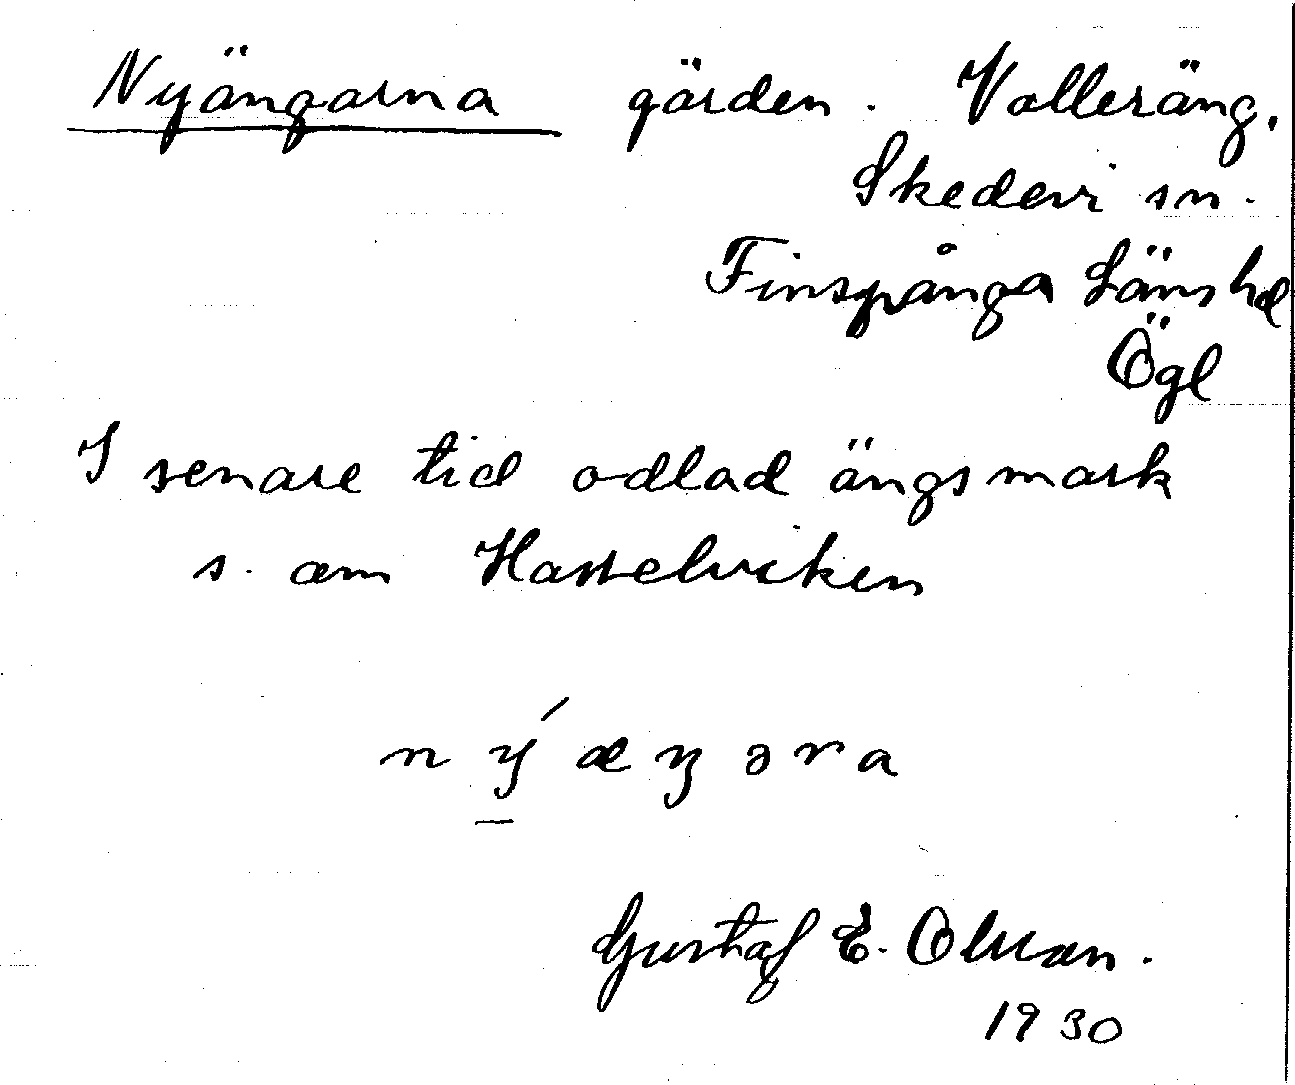 Nyängarna gärden. Valleräng.
Skedevi sn.
Finspånga Läns hd
Ögl
I senare tid odlad ängsmark
s. om Hasselviken
nýæŋəra
Gustaf E. Olman.
1930